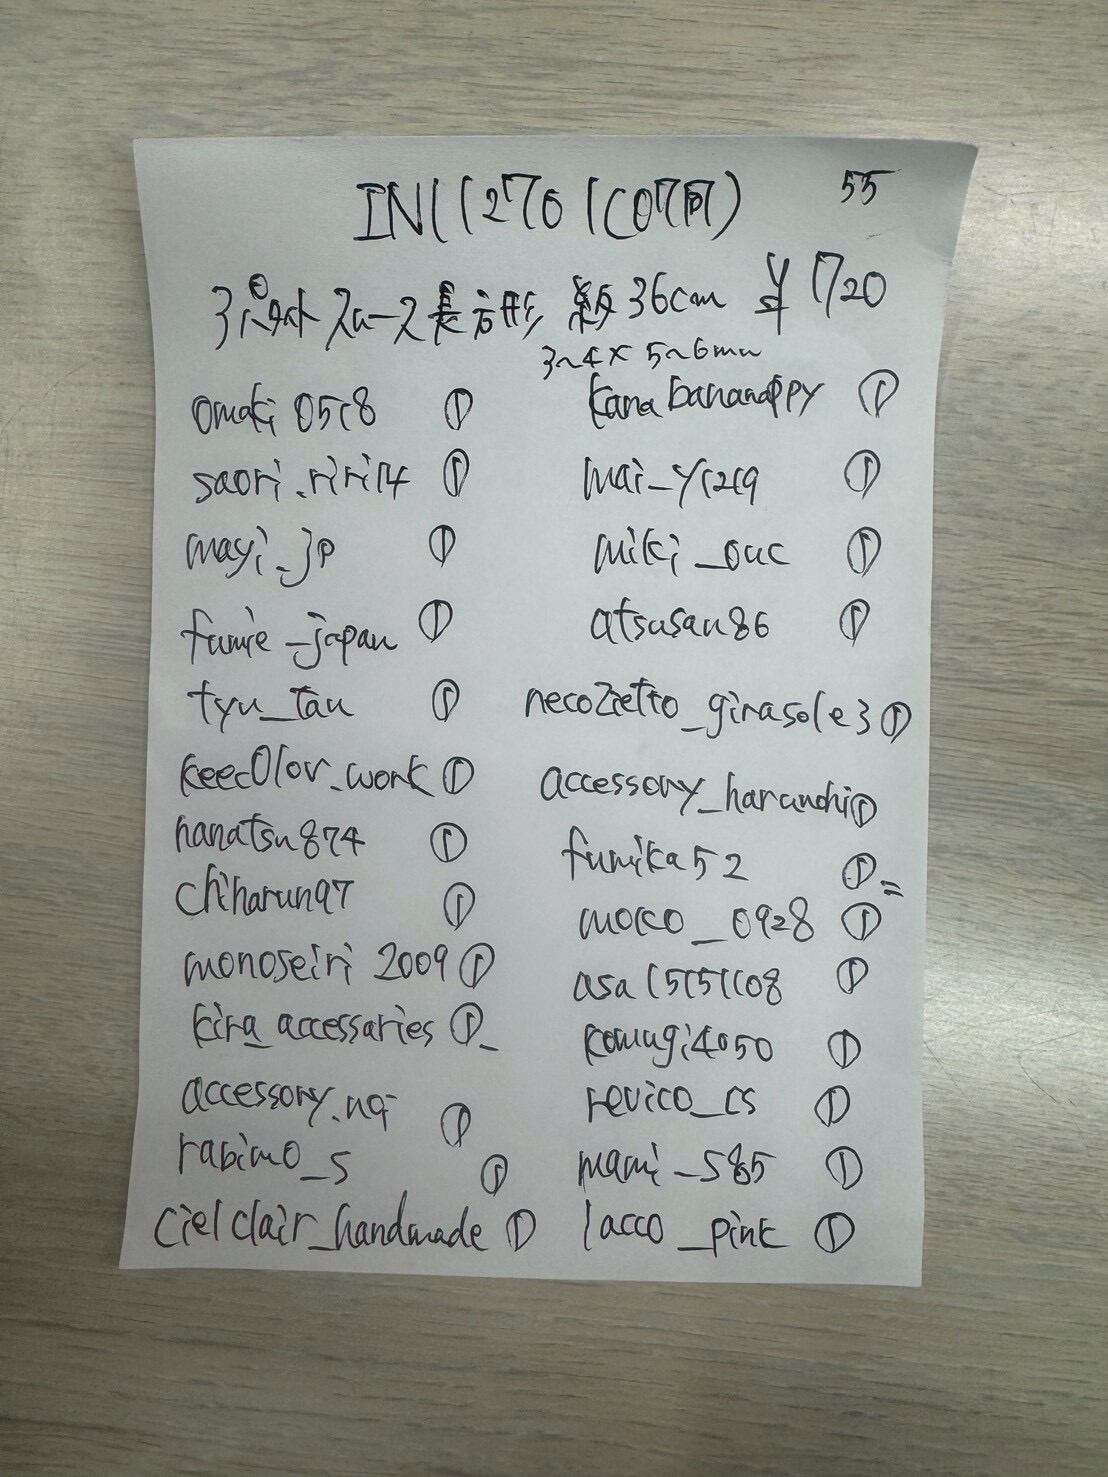 55
3パケット スムース 長方形 約36cm ¥1720
3~4×5~6mm
omaki0518 ①
saori.riri14 ①
mayi_jp ①
fumie_japan ①
tyu_tau ①
keec0lor_work ①
hanatsu874 ①
chiharun97 ①
monoseiri2009 ①
kira_accessaries ①
accessory.nq ①
rabimo_s ①
cielclair_handmade ①
kanabananappy ①
mai_y1219 ①
miki_ouc ①
atsusan86 ①
necozietto_girasole3 ①
accessory_harunohi ①
fumika52 ①
mocco_0928 ①
asa15151108 ①
komugi4050 ①
revico_cs ①
mami_585 ①
lacco_pink ①